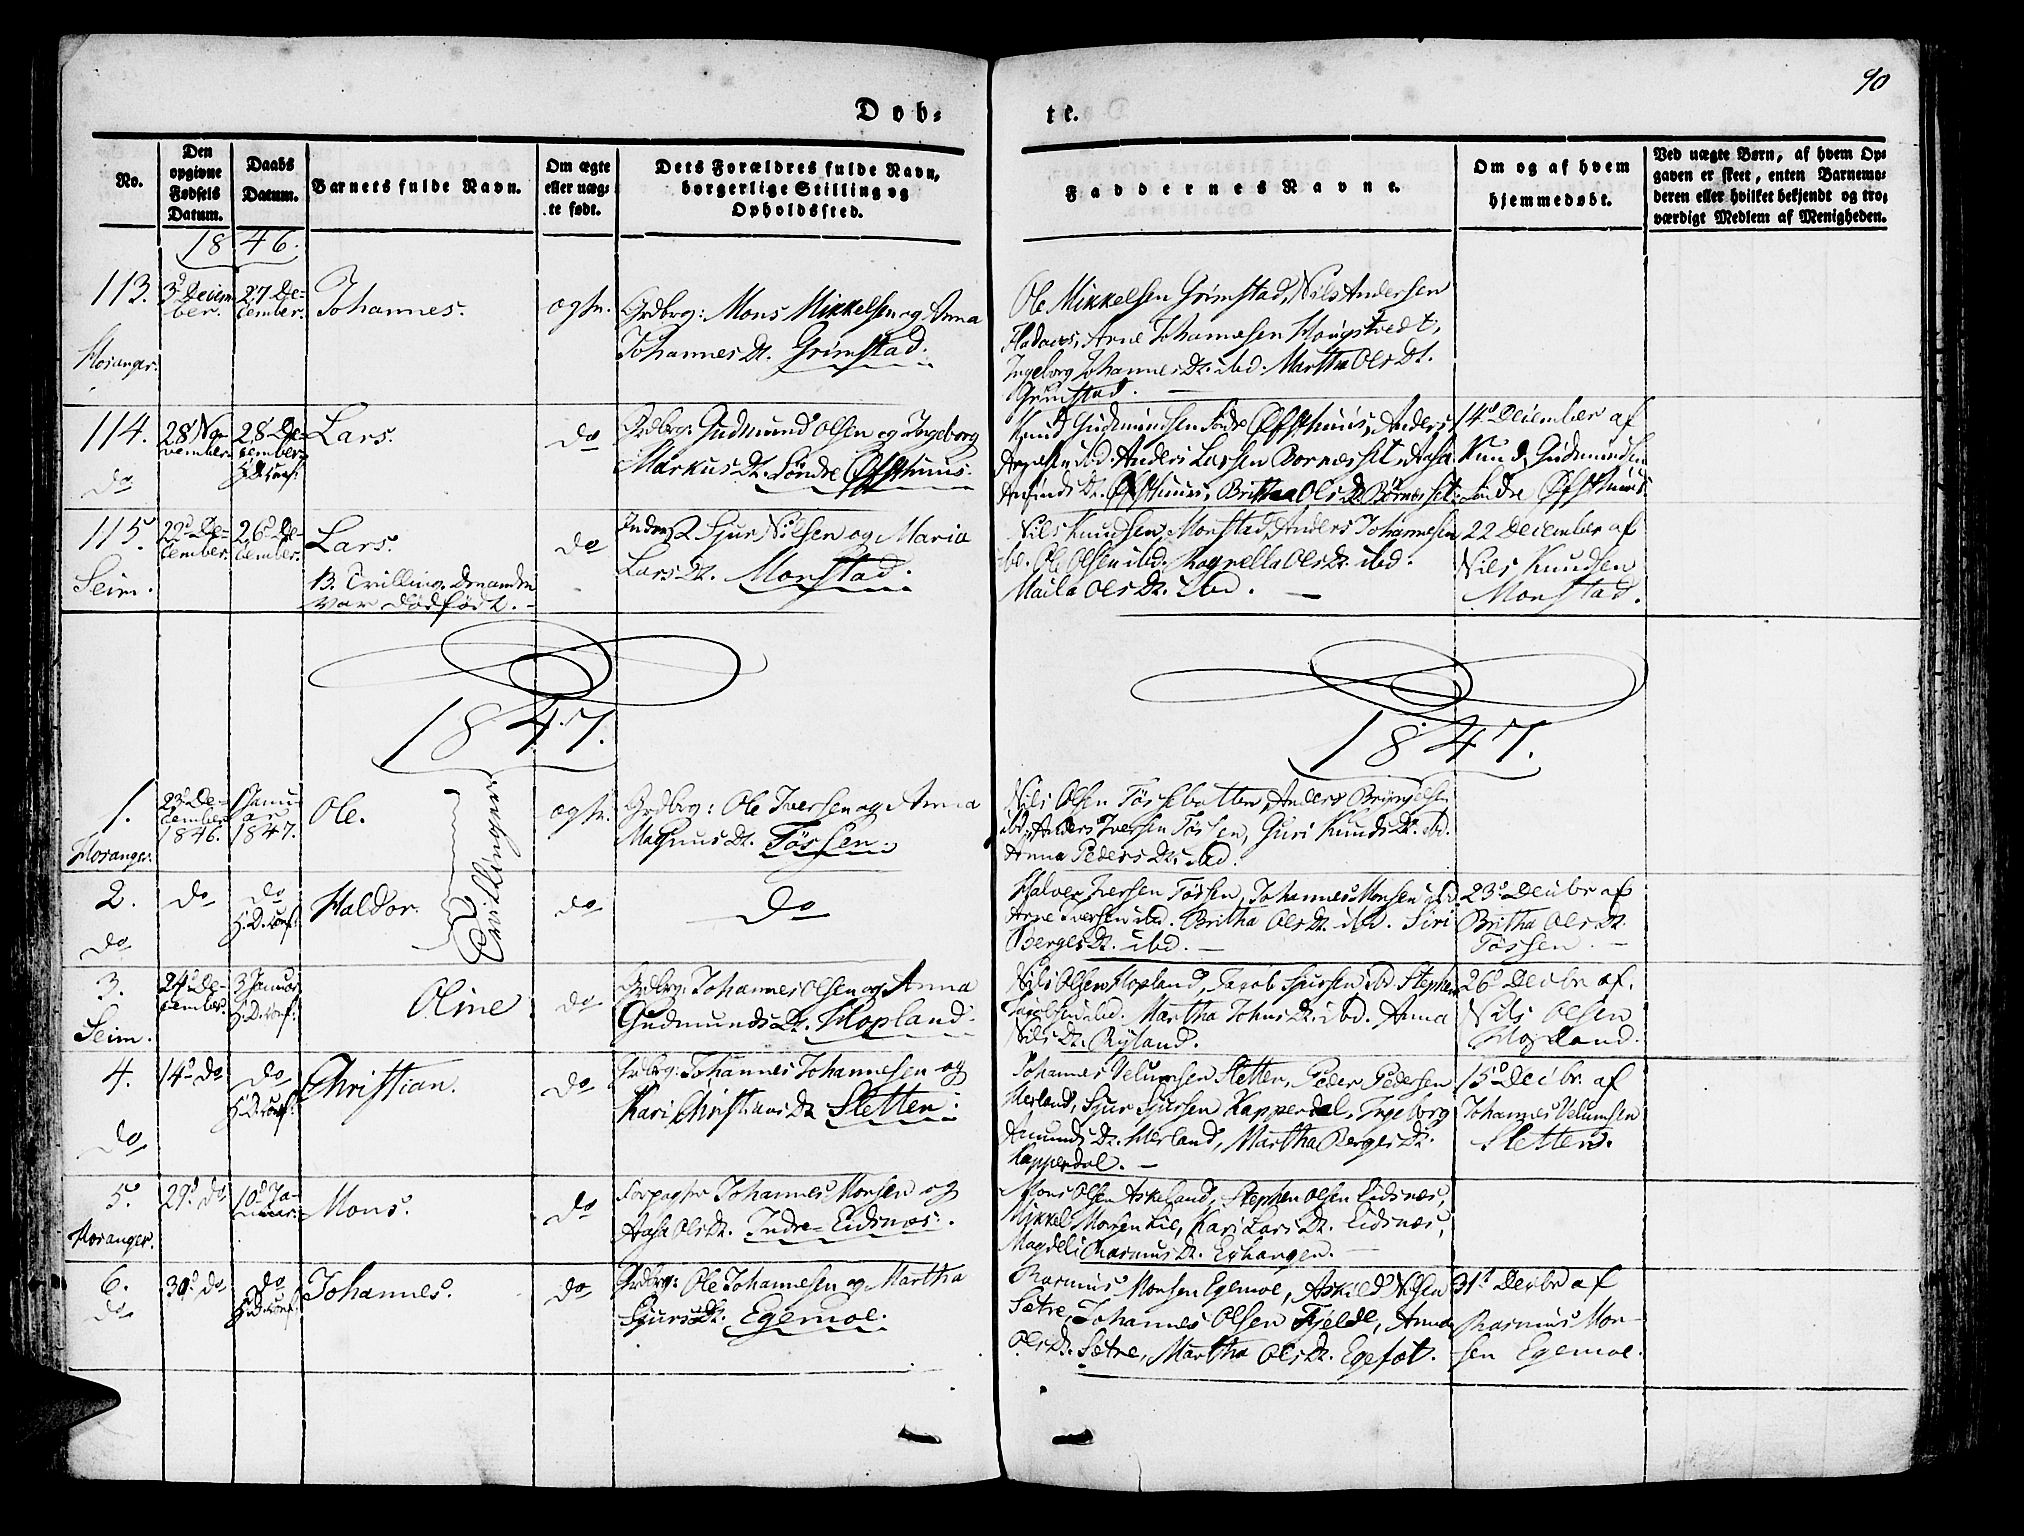 90
Døb-
te.
No.
Den opgivne Fødsels Datum.
Daabs Datum.
Barnets fulde Navn.
Om ægte eller uæg-te født.
Dets Forældres fulde Navn, borgerlige Stilling og Opholdssted.
Faddernes Navne.
Om og af hvem hjemmedøbt.
Ved uægte Børn, af hvem Op-gaven er skeet, enten Barnemo-deren eller hvilket bekjendt og tro-værdigt Medlem af Menigheden.
1846.
113.
Hosanger.
27 De-
cember.
Johannes.
Grdbrg: Mons Mikkelsen og Anna
Johannes Dt. Grimstad.
Ole Mikkelsen Grimstad, Nils Andersen
Arne Johannesen
Ingeborg Johannes Dt. ibd. Martha Ols Dt.
Grimstad.
114.
do
28 No-
vember
28 De-
cember
Lars.
do
Grdbrg: Gudmund Olsen og Ingeborg
Markus Dt. Søndre Øfsthuus.
Knud Gudmundsen Søndre Øfsthuus, Anders
ibd. Anders Larsen Bornæsset, Aasa
Dt. Øfsthuus, Britha Ols Dt. Bornesset.
14d December af
Knud Gudmundsen
Søndre Øfsthuus.
115.
Seim.
22d De-
cember.
26d De-
cember.
Lars.
B. Tvilling, den anden
var dødfødt.
do
Sjur Nilsen og Maria
Lars Dt. Monstad.
Nils Knudsen Monstad, Anders Johannesen
ibd. Ole Olsen ibd. Ragnella Ols Dt. ibd.
Ols Dt. ibd.
22 December af
Nils Knudsen
Monstad.
1847.
1847.
1.
Hosanger.
23d De-
cember
1846.
1 Janu-
ar
1847.
Ole.
Tvillinger
Grdbrg: Ole Iversen og Anna
Magnus Dt. Tøssen.
Nils Olsen Tøssebotten, Anders
ibd., Anders Iversen Tøssen, Guri Knuds Dt. ibd.
Anna Peders Dt. ibd.
2.
do
do
do
H.D. conf.
Haldor.
do
do
Halvor Iversen Tøssen, Johannes Monsen ibd.
Arne Iversen ibd. Britha Ols Dt. ibd. Siri
Berges Dt. ibd.
23d Decbr af
Britha Ols Dt.
Tøssen.
3.
Seim.
24d De-
cember.
3 Januar
H.D. conf.
Oline
do
Grdbrg: Johannes Olsen og Anna
Gudmunds Dt. Hopland.
Nils Olsen Hopland, Jacob Sjursen ibd. Stephen
Jacobsen ibd. Martha Johns Dt. ibd. Anna
Nils Dt. Ryland.
26d Decbr af.
Nils Olsen
Hopland.
4.
do
14d do
do
H.D. conf.
Christian.
do
Grdbrg: Johannes Johannesen og
Kari Christians Dt. Sletten.
Johannes Velumsen Sletten, Peder Pedersen
Sjur Sjursen Kapperdal, Ingeborg
Amunds Dt. Martha Berges Dt.
Kapperdal.
15d Decbr. af
Johannes Velumsen
Sletten.
5.
Hosanger.
29d do
10d Ja-
nuar.
Mons.
do
Johannes Monsen og
Aasa Ols Dt. Indre-Eidsnæs.
Mons Olsen Askeland, Stephen Olsen Eidsnæs,
Mikkel Monsen Lie, Kari Lars Dt. Eidsnæs,
Magdeli Rasmus Dt. Erhangen.
6.
do
30d do
do
H.D. conf.
Johannes.
do
Grdbrg: Ole Johannesen og Martha
Sjurs Dt. Egemoe.
Rasmus Monsen Egemoe, Askild Nilsen
Sætre, Johannes Olsen Fjelde, Anna
Ols Dt. Sætre, Martha Ols Dt. Egesæt.
31d Decbr af
Rasmus Mon-
sen Egemoe.